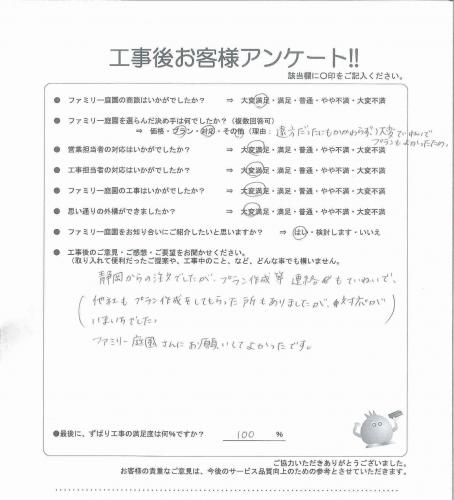 工事後お客様アンケート!!
該当欄に〇印をご記入ください。
● ファミリー庭園の商談はいかがでしたか？ ⇒ 大変満足・満足・普通・やや不満・大変不満
● ファミリー庭園を選んだ決め手は何でしたか？（複数回答可）
⇒ 価格・プラン・対応・その他（理由： 遠方だったにもかかわらず、大変ていねいで
プランもよかったため。
● 営業担当者の対応はいかがでしたか？ ⇒ 大変満足・満足・普通・やや不満・大変不満
● 工事担当者の対応はいかがでしたか？ ⇒ 大変満足・満足・普通・やや不満・大変不満
● ファミリー庭園の工事はいかがでしたか？ ⇒ 大変満足・満足・普通・やや不満・大変不満
● 思い通りの外構ができましたか？ ⇒ 大変満足・満足・普通・やや不満・大変不満
● ファミリー庭園をお知り合いにご紹介したいと思いますか？ ⇒ はい・検討します・いいえ
● 工事後のご意見・ご感想・ご要望をお聞かせください。
（取り入れて便利だったご提案や、工事中のこと、など、どんな事でも構いません。
静岡からの注文でしたが、プラン作成等 連絡もていねいで、
他社もプラン作成をしてもらった所もありましたが、対応が
いまいちでした。
ファミリー庭園さんにお願いしてよかったです。
●最後に、ずばり工事の満足度は何％ですか？ 100 ％
ご協力いただきありがとうございました。
お客様の貴重なご意見は、今後のサービス品質向上のための参考とさせていただきます。